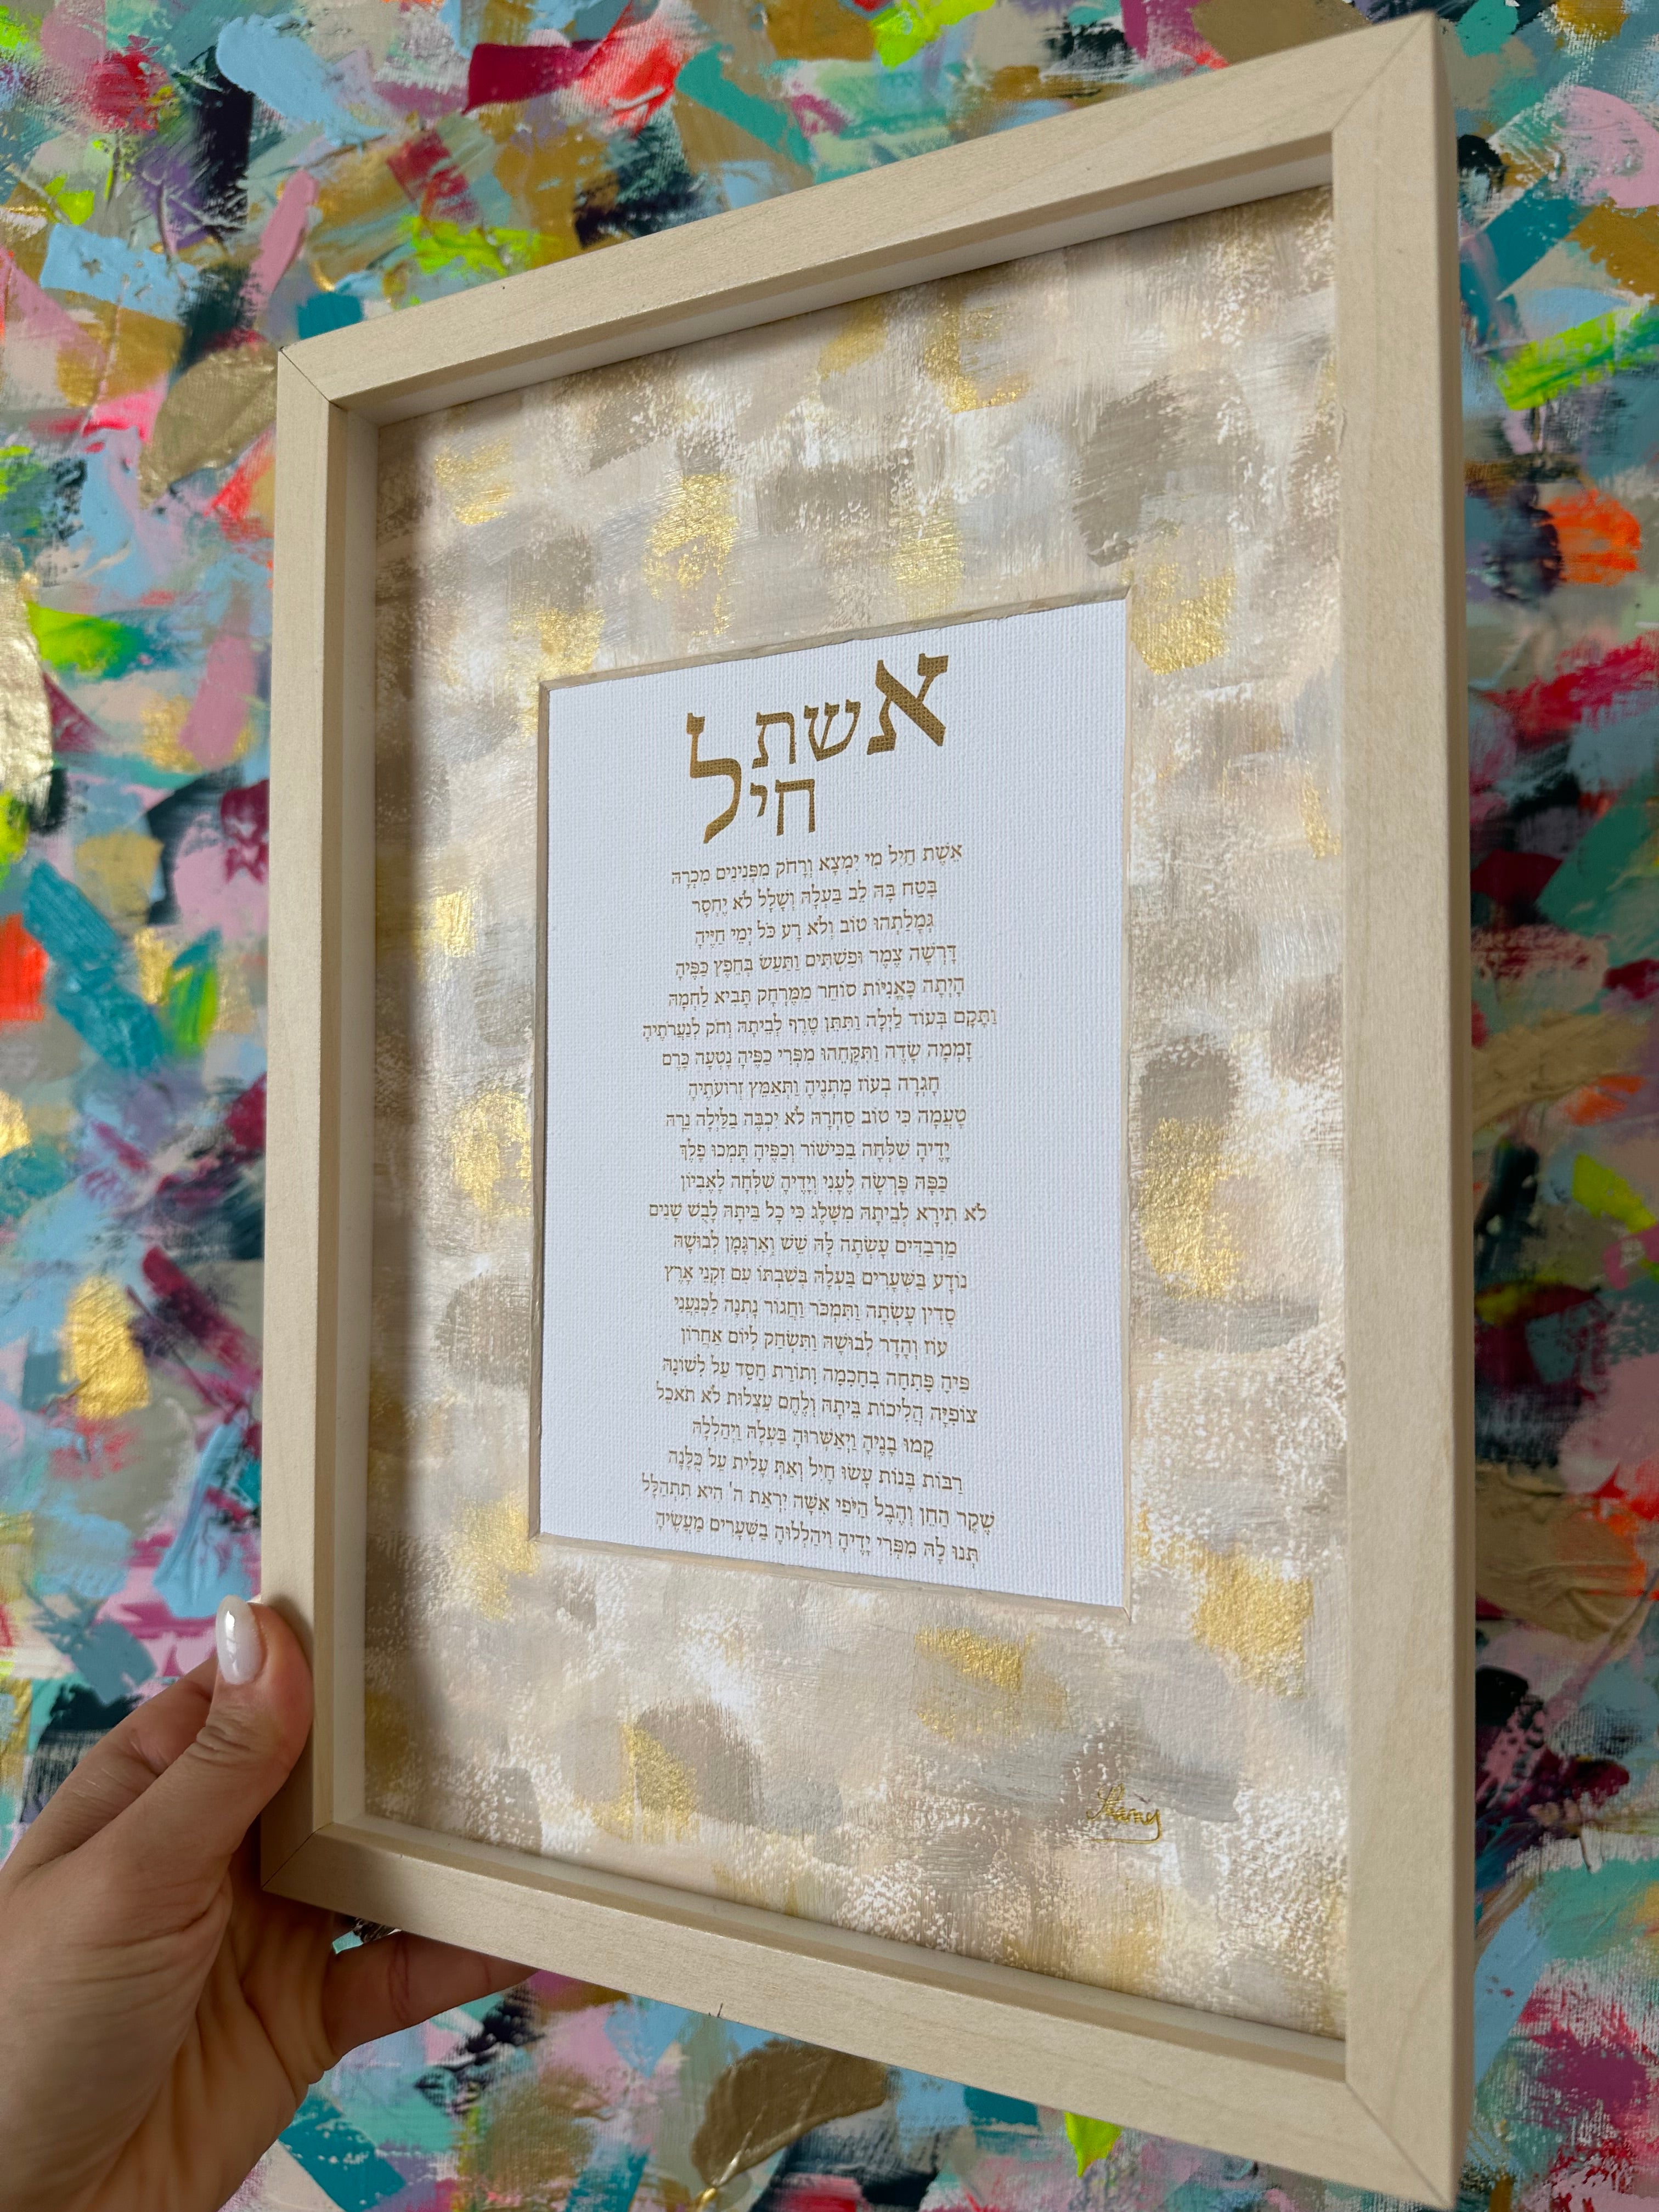 אשת
חיל
אֵשֶׁת חַיִל מִי יִמְצָא וְרָחֹק מִפְּנִינִים מִכְרָהּ
בָּטַח בָּהּ לֵב בַּעְלָהּ וְשָׁלָל לֹא יֶחְסָר
גְּמָלַתְהוּ טוֹב וְלֹא רָע כֹּל יְמֵי חַיֶּיהָ
דָּרְשָׁה צֶמֶר וּפִשְׁתִּים וַתַּעַשׂ בְּחֵפֶץ כַּפֶּיהָ
הָיְתָה כָּאֳנִיּוֹת סוֹחֵר מִמֶּרְחָק תָּבִיא לַחְמָהּ
וַתָּקָם בְּעוֹד לַיְלָה וַתִּתֵּן טֶרֶף לְבֵיתָהּ וְחֹק לְנַעֲרֹתֶיהָ
זָמְמָה שָׂדֶה וַתִּקָּחֵהוּ מִפְּרִי כַפֶּיהָ נָטְעָה כָּרֶם
חָגְרָה בְעוֹז מָתְנֶיהָ וַתְּאַמֵּץ זְרוֹעֹתֶיהָ
טָעֲמָה כִּי טוֹב סַחְרָהּ לֹא יִכְבֶּה בַלַּיְלָה נֵרָהּ
יָדֶיהָ שִׁלְּחָה בַכִּישׁוֹר וְכַפֶּיהָ תָּמְכוּ פָלֶךְ
כַּפָּהּ פָּרְשָׂה לֶעָנִי וְיָדֶיהָ שִׁלְּחָה לָאֶבְיוֹן
לֹא תִירָא לְבֵיתָהּ מִשָּׁלֶג כִּי כָל בֵּיתָהּ לָבֻשׁ שָׁנִים
מַרְבַדִּים עָשְׂתָה לָּהּ שֵׁשׁ וְאַרְגָּמָן לְבוּשָׁהּ
נוֹדָע בַּשְּׁעָרִים בַּעְלָהּ בְּשִׁבְתּוֹ עִם זִקְנֵי אָרֶץ
סָדִין עָשְׂתָה וַתִּמְכֹּר וַחֲגוֹר נָתְנָה לַכְּנַעֲנִי
עוֹז וְהָדָר לְבוּשָׁהּ וַתִּשְׂחַק לְיוֹם אַחֲרוֹן
פִּיהָ פָּתְחָה בְחָכְמָה וְתוֹרַת חֶסֶד עַל לְשׁוֹנָהּ
צוֹפִיָּה הֲלִיכוֹת בֵּיתָהּ וְלֶחֶם עַצְלוּת לֹא תֹאכֵל
קָמוּ בָנֶיהָ וַיְאַשְּׁרוּהָ בַּעְלָהּ וַיְהַלְלָהּ
רַבּוֹת בָּנוֹת עָשׂוּ חָיִל וְאַתְּ עָלִית עַל כֻּלָּנָה
שֶׁקֶר הַחֵן וְהֶבֶל הַיֹּפִי אִשָּׁה יִרְאַת ה' הִיא תִתְהַלָּל
תְּנוּ לָהּ מִפְּרִי יָדֶיהָ וִיהַלְלוּהָ בַּשְּׁעָרִים מַעֲשֶׂיהָ